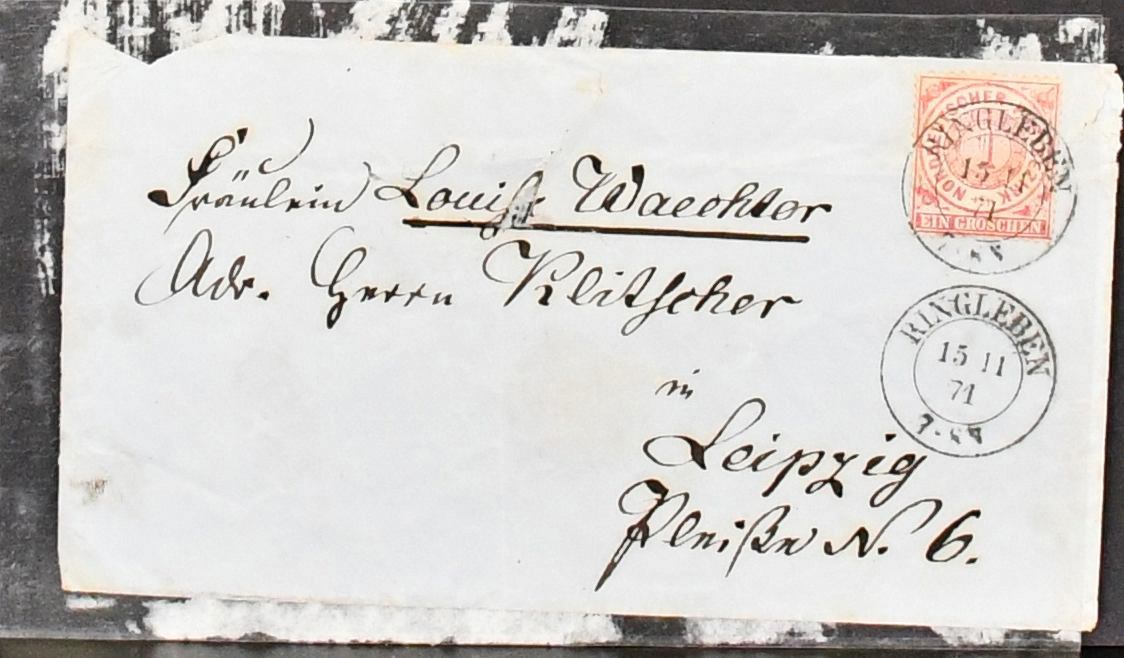 Fräulein Louise Waechter
Adr. Herrn Klitscher
in
Leipzig
Pleiße N. 6.
NORDDEUTSCHER
EIN GROSCHEN
RINGLEBEN
15 11
71
RINGLEBEN
15 11
71
7-8 N